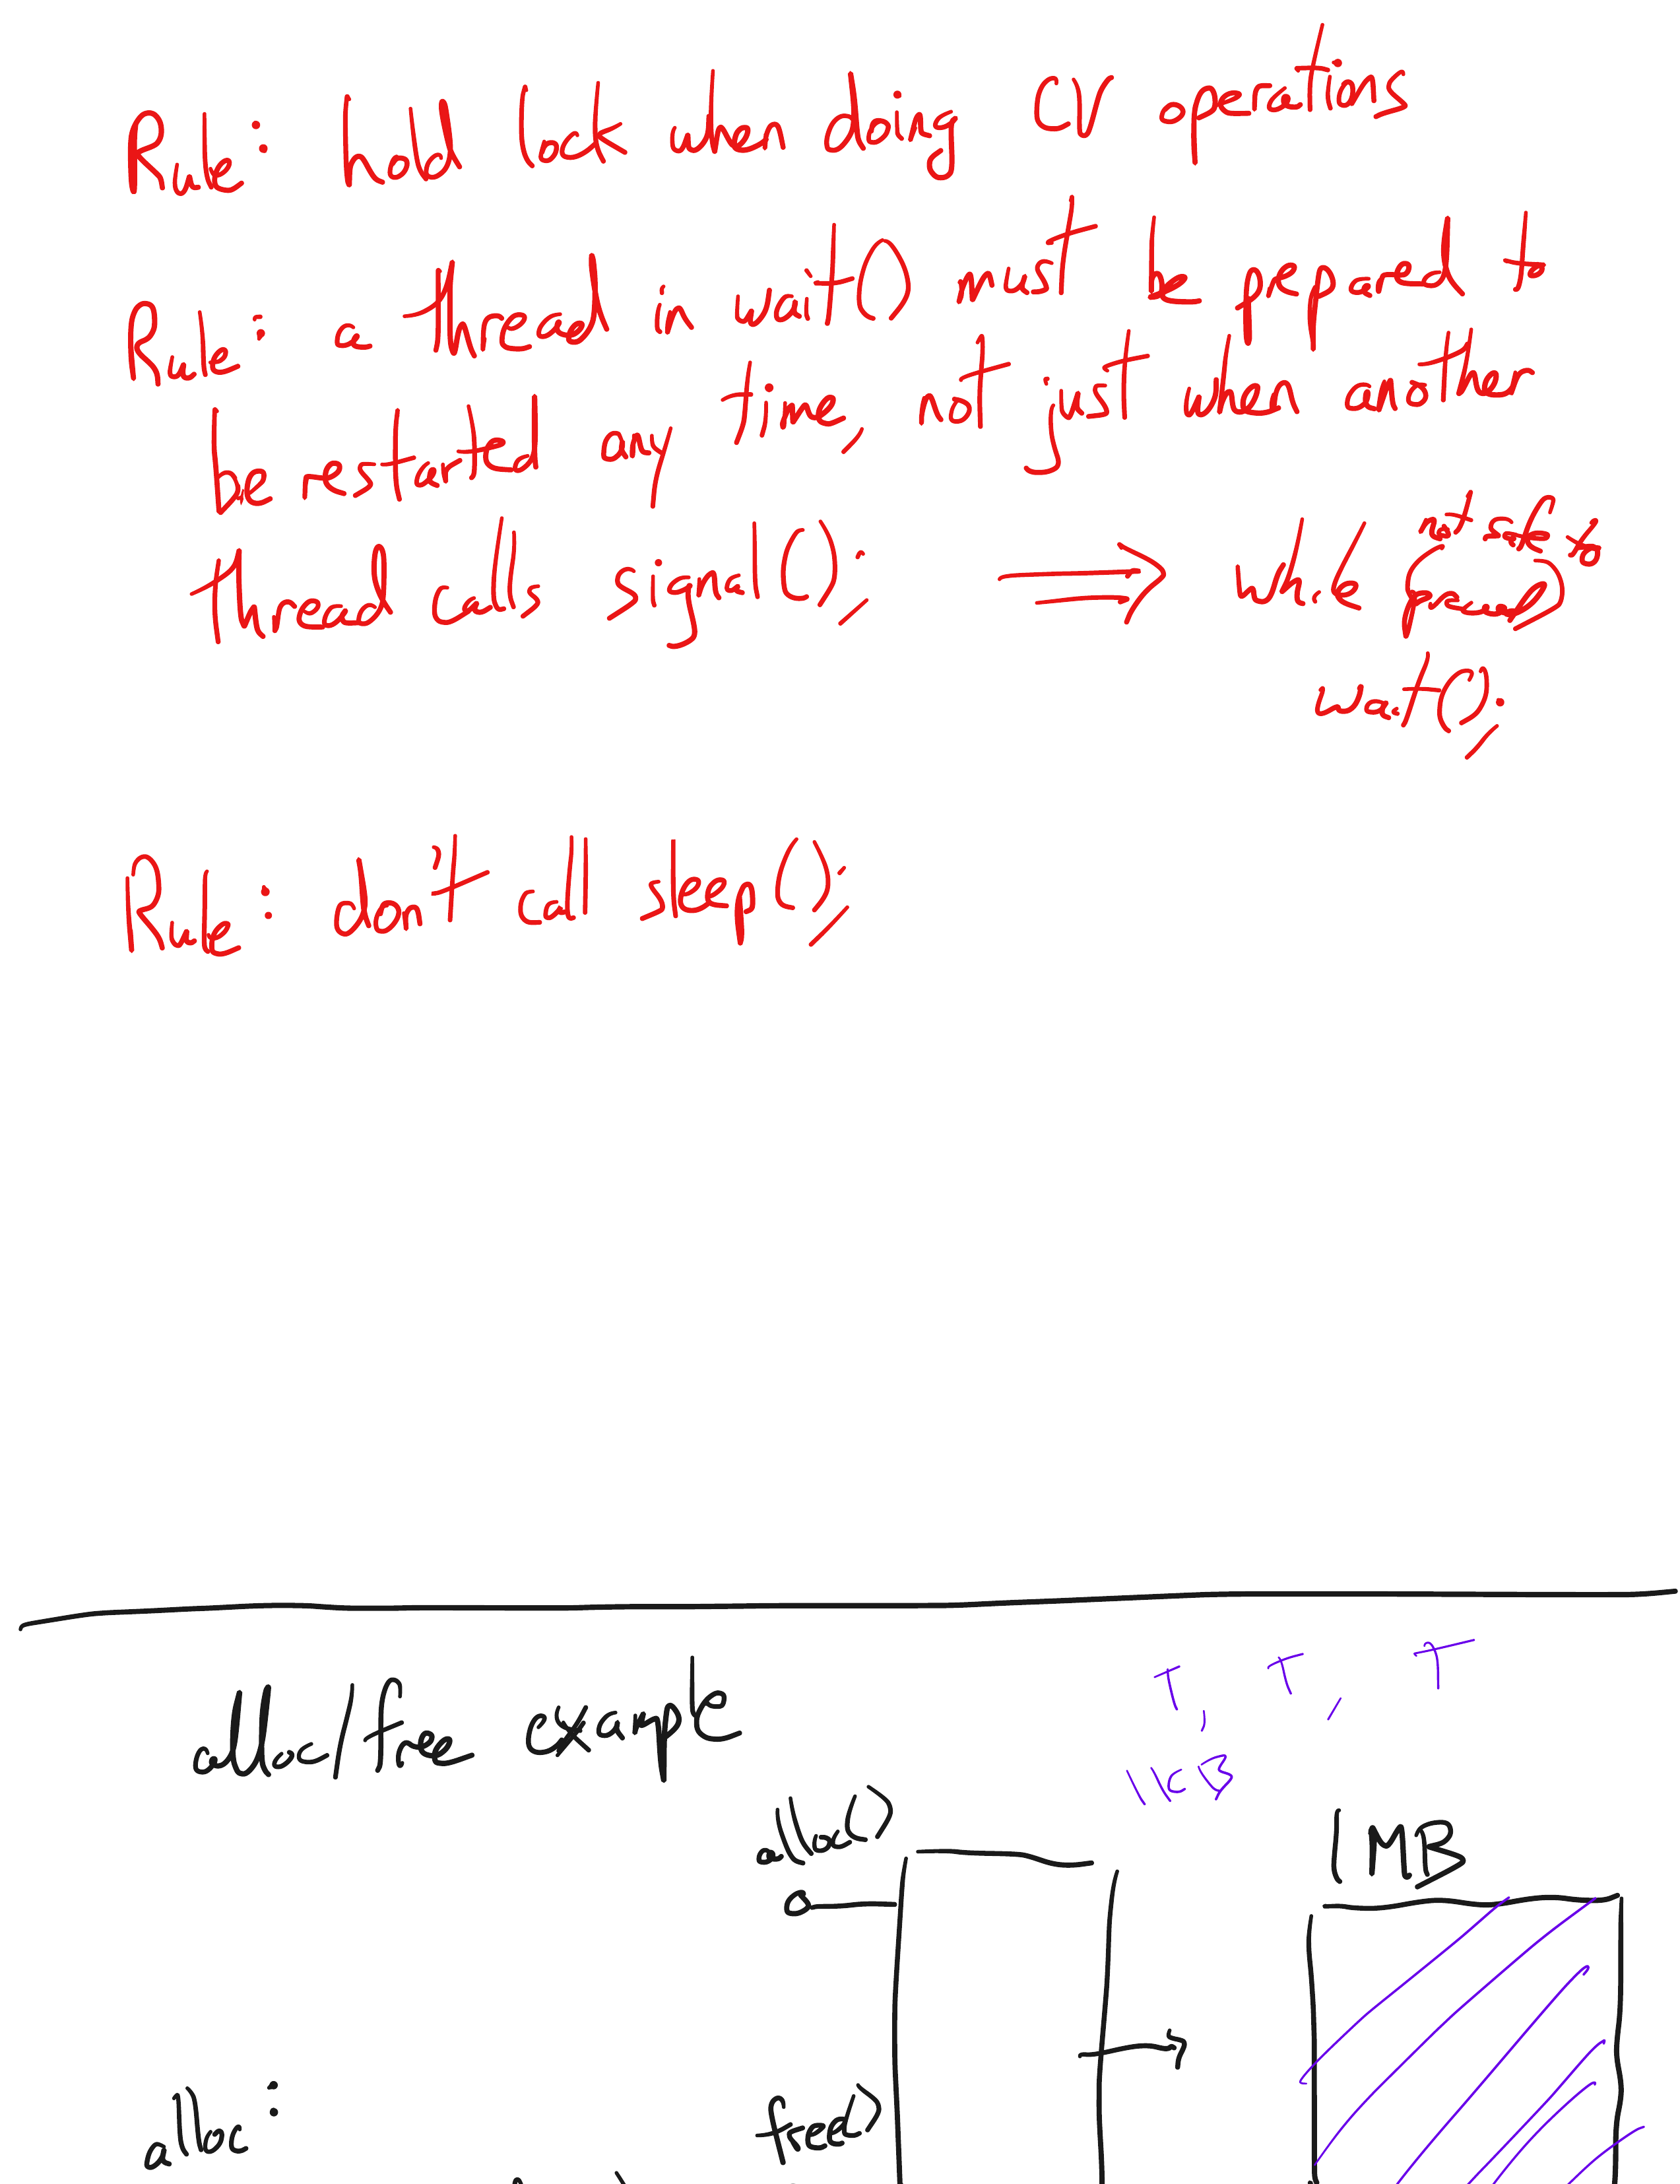 Rule: hold lock when doing CV operations
Rule: a thread in wait() must be prepared to
be restarted any time, not just when another
thread calls signal(); ⟹ while (not safe to
proceed)
wait();
Rule: don't call sleep();
alloc/free example
T, T, T
1KB
alloc()
1MB
alloc:
free()